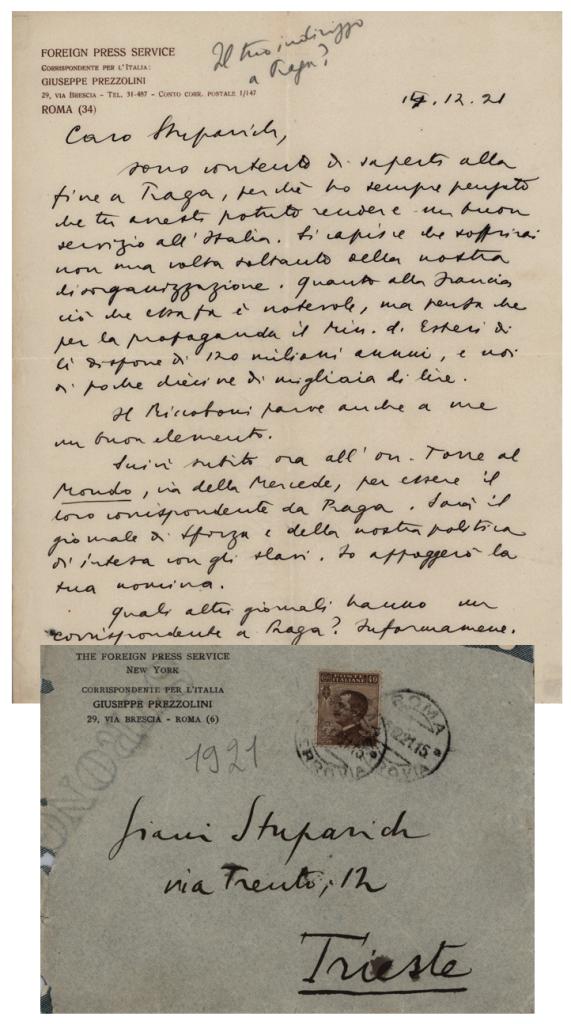 FOREIGN PRESS SERVICE
CORRISPONDENTE PER L'ITALIA:
GIUSEPPE PREZZOLINI
29, VIA BRESCIA - TEL. 31-487 - CONTO CORR. POSTALE 1/147
ROMA (34)
Il tuo indirizzo
a Praga?
14.12.21
Caro Stuparich,
sono contento di saperti alla
fine a Praga, perché ho sempre pensato
che tu avresti potuto rendere un buon
servizio all'Italia. Si capisce che soffrirai
non una volta soltanto della nostra
disorganizzazione. Quanto alla Francia
ciò che essa fa è notevole, ma pensa che
per la propaganda il Min. d. Esteri di
lì dispone di 120 milioni annui, e noi
di poche diecine di migliaia di lire.
Il Riccoboni parve anche a me
un buon elemento.
Scrivi subito ora all'on. Torre al
Mondo, via della Mercede, per essere il
loro corrispondente da Praga. Sarà il
giornale di Sforza e della nostra politica
di intesa con gli slavi. Io appoggerò la
tua nomina.
Quali altri giornali hanno un
corrispondente a Praga? Informamene.
THE FOREIGN PRESS SERVICE
NEW YORK
CORRISPONDENTE PER L'ITALIA
GIUSEPPE PREZZOLINI
29, VIA BRESCIA - ROMA (6)
40
ROMA
FERROVIA
1921
Giani Stuparich
via Trento, 12
Trieste